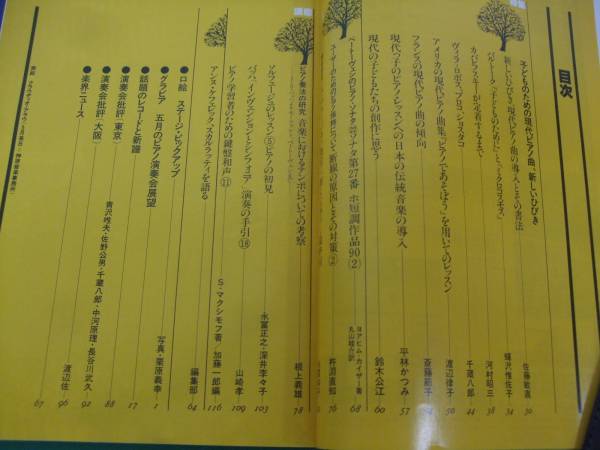 目次
子どものための現代ピアノ曲、新しいひびき
新しいひびき・現代ピアノ曲の導入とその書法 佐藤敏直 30
バルトーク「子どものために」と、「ミクロコスモス」 蟻沢惟佐子 34
カバレフスキーが定着するまで 河村昭三 38
ヴィラ・ロボス、プロコ、ショスタコ 千蔵八郎 44
アメリカの現代ピアノ曲集「ピアノであそぼう」を用いてのレッスン 渡辺律子 50
フランスの現代ピアノ曲の傾向 斎藤範子
現代っ子のピアノレッスンへの日本の伝統音楽の導入 平林かつみ 57
現代の子どもたちの創作に思う 鈴木公江 60
ベートーヴェンのピアノ・ソナタ⑰ソナタ第27番 ホ短調作品90(2) ヨアヒム・カイザー著 丸山桂介訳 68
ユーザーのためのピアノ修理について 断線の原因とその対策② 杵淵直知 76
ピアノ奏法の研究 音楽におけるテンポについての考察 根上義雄 78
ソルフェージュのレッスン⑤ピアノの初見 永冨正之・深井李々子 103
バッハ、インヴェンションとシンフォニア〈演奏の手引〉⑱ 山崎孝 109
ピアノ学習者のための鍵盤和声⑪ S・マクシモフ著/加藤一郎編 116
アンヌ・ケフェレック、スカルラッティを語る 編集部 64
●口絵 ステージ・ピックアップ 写真・栗原義幸 1
●グラビア 五月のピアノ演奏会展望 17
●話題のレコードと新譜 88
●演奏会批評〈東京〉 青沢唯夫・佐野公男・千蔵八郎・中河原理・長谷川武久 92
●演奏会批評〈大阪〉 渡辺佐 96
●楽界ニュース 67